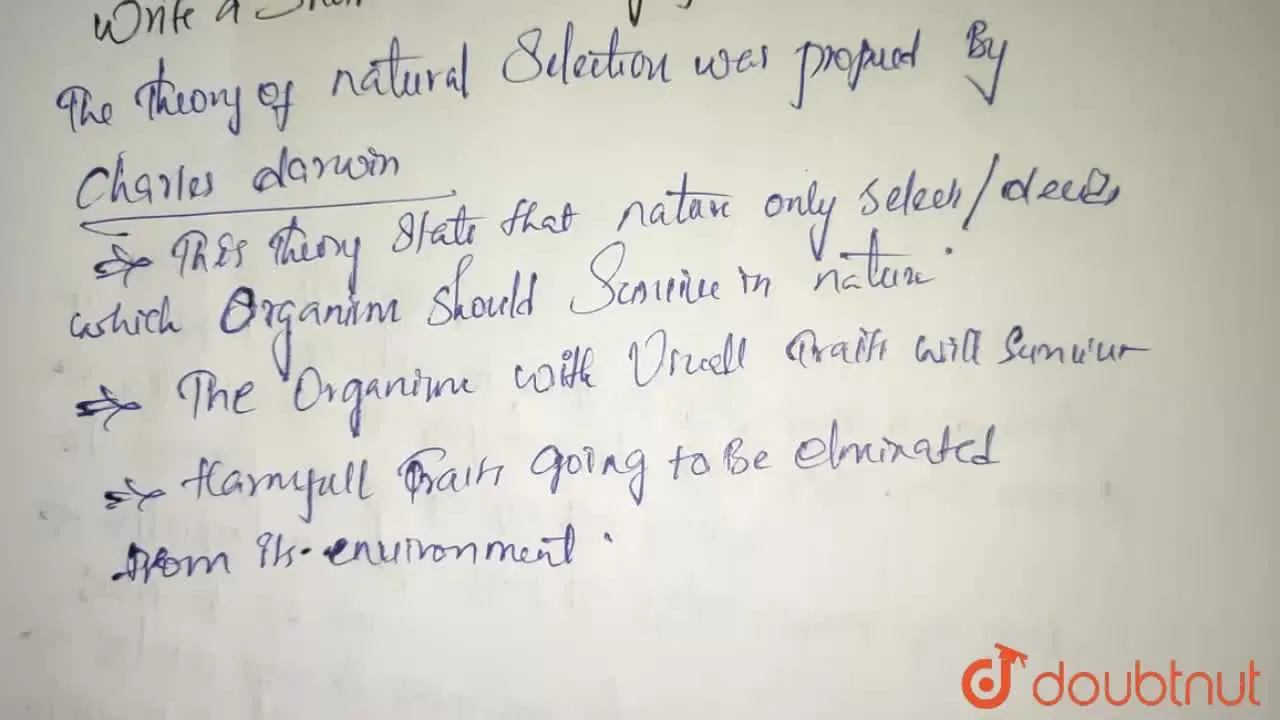 Write a Short
The Theory of natural Selection was proposed By
Charles darwin
→ This Theory State that nature only select/decides
which Organism should Survive in nature.
→ The Organism with Usuall Traits will Survive
→ Harmfull Traits going to Be elminated
from its environment.
doubtnut